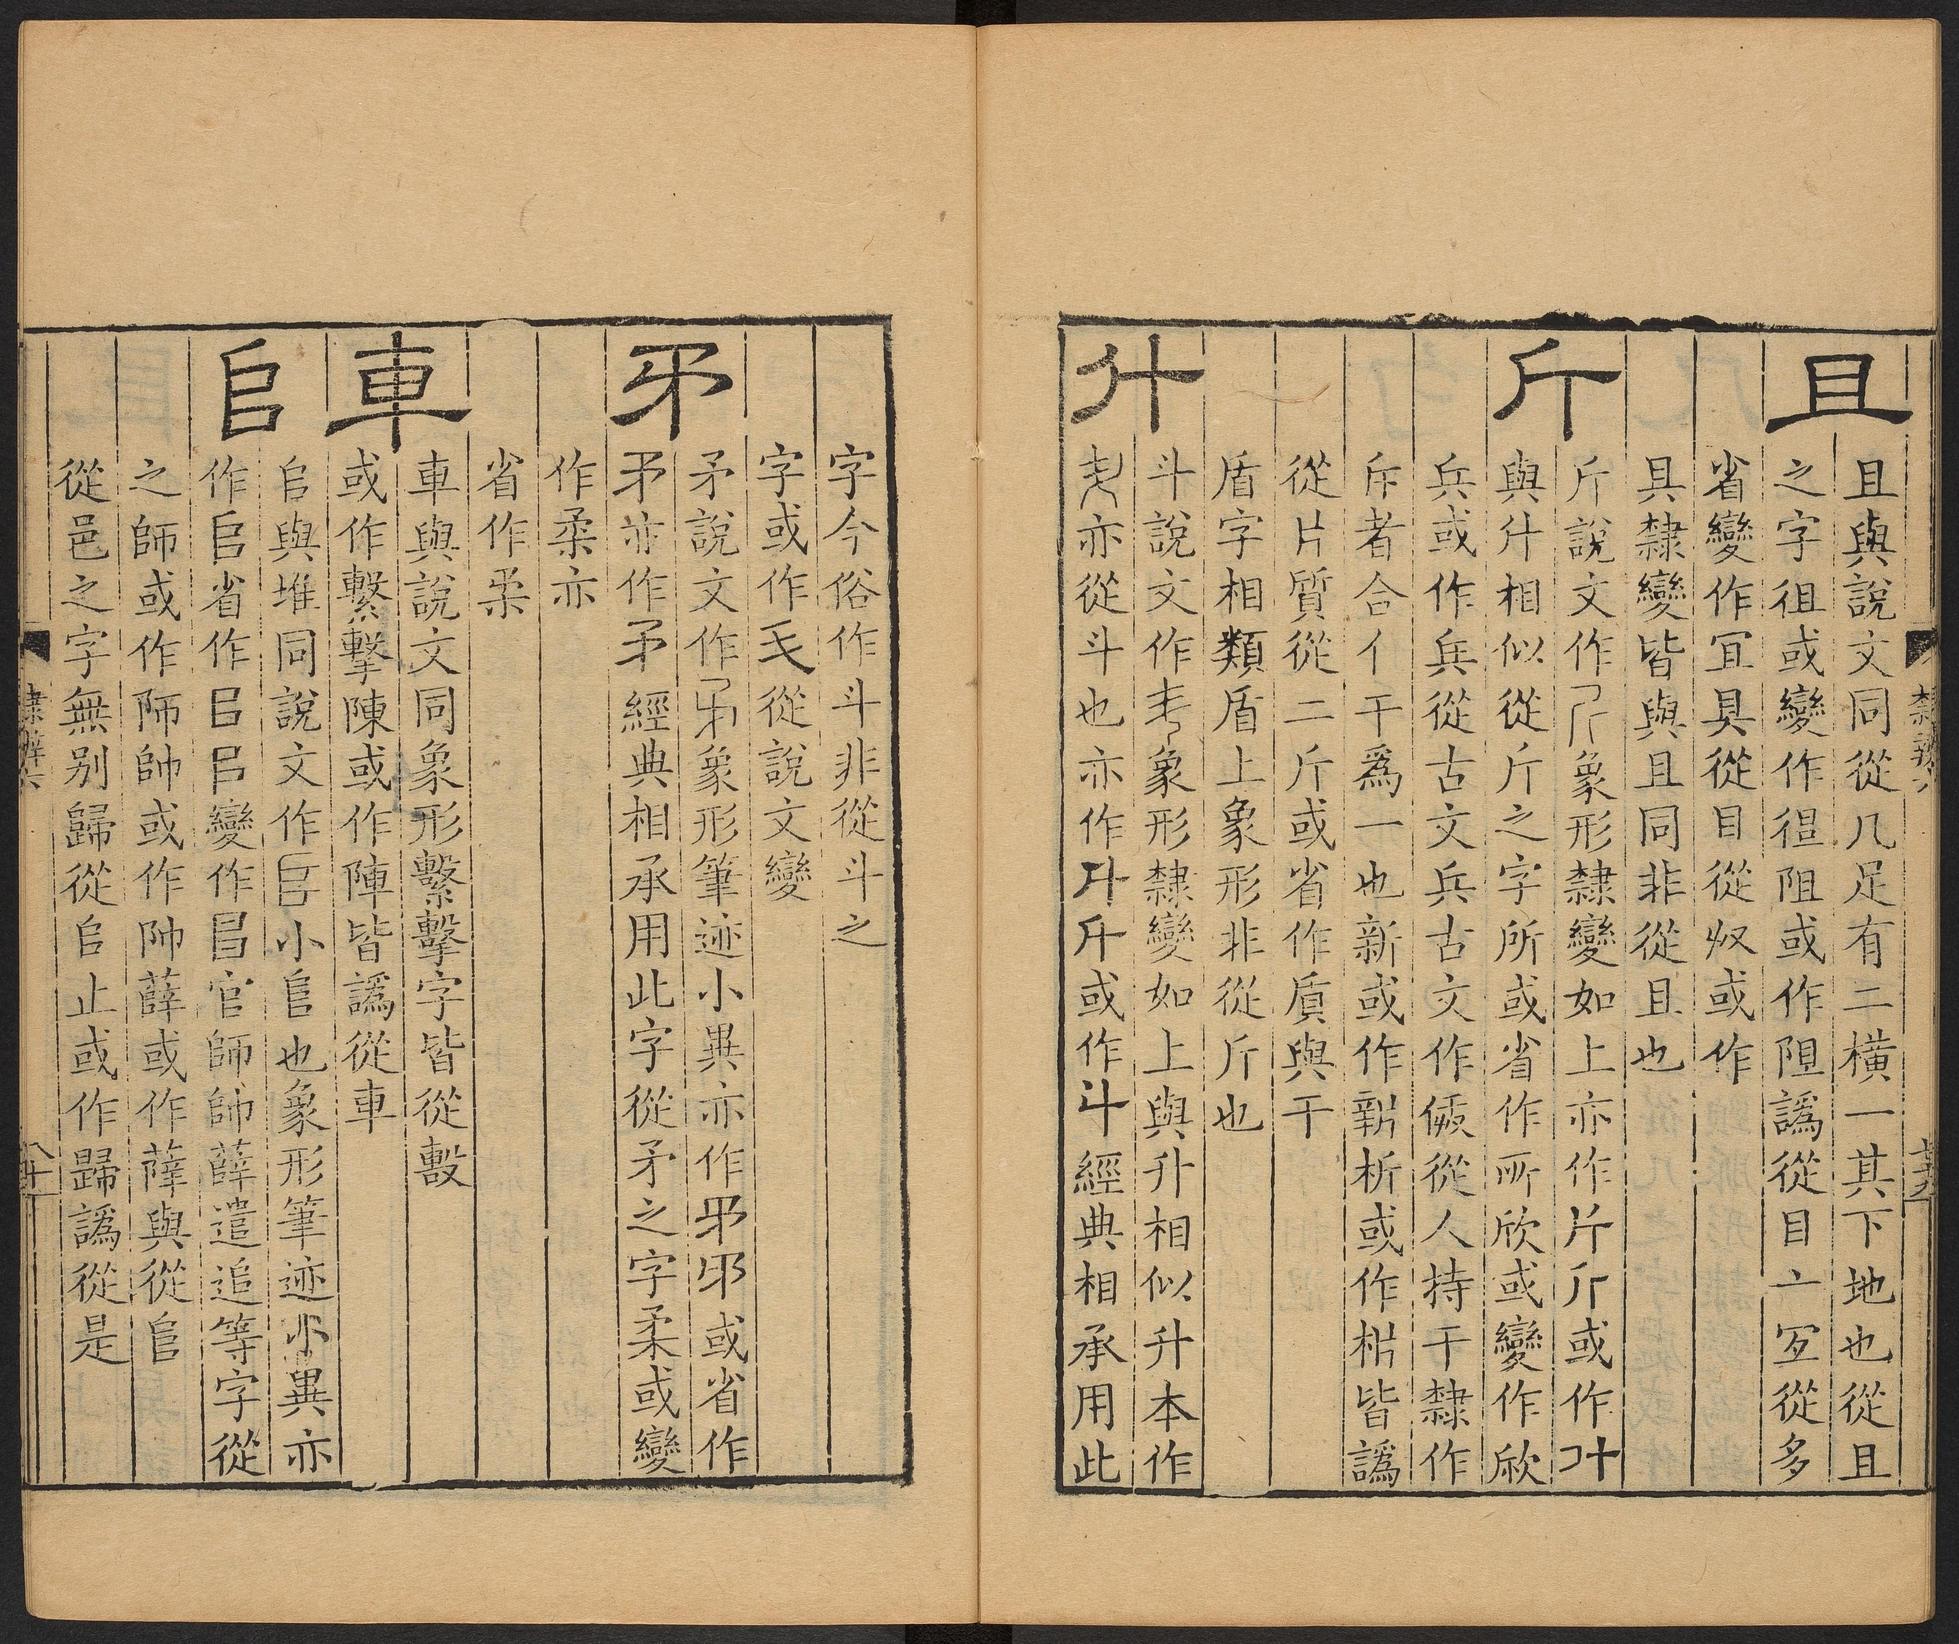 且
且與說文同從几足有二横一其下地也從且
之字徂或變作徂阻或作阻譌從目亠宜從多
省變作冝具從目從収或作
具隸變皆與且同非從且也
斤
斤說文作象形隸變如上亦作斤斤或作
與什相似從斤之字所或省作所欣或變作欣
兵或作兵從古文兵古文作從人持干隸作
斥者合亻干爲一也新或作新析或作析皆譌
從片質從二斤或省作質與干
盾字相類盾上象形非從斤也
斗說文作象形隸變如上與升相似升本作
亦從斗也亦作或作斗經典相承用此
字今俗作斗非從斗之
字或作從說文變
矛說文作象形筆迹小異亦作或省作
矛亦作矛經典相承用此字從矛之字柔或變
作柔亦
省作柔
車
車與說文同象形繫擊字皆從毄
或作繫擊陳或作陣皆譌從車
𠂤
𠂤與堆同說文作小𨸏也象形筆迹小異亦
作省作變作官師帥薛遣追等字從
之師或作師帥或作帥薛或作薛與從𨸏
從邑之字無别歸從𠂤止或作歸譌從是